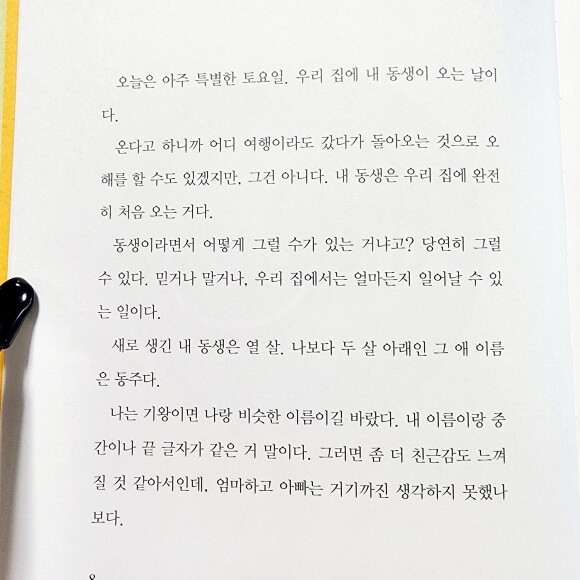 오늘은 아주 특별한 토요일. 우리 집에 내 동생이 오는 날이
다.
온다고 하니까 어디 여행이라도 갔다가 돌아오는 것으로 오
해를 할 수도 있겠지만, 그건 아니다. 내 동생은 우리 집에 완전
히 처음 오는 거다.
동생이라면서 어떻게 그럴 수가 있는 거냐고? 당연히 그럴
수 있다. 믿거나 말거나, 우리 집에서는 얼마든지 일어날 수 있
는 일이다.
새로 생긴 내 동생은 열 살. 나보다 두 살 아래인 그 애 이름
은 동주다.
나는 기왕이면 나랑 비슷한 이름이길 바랐다. 내 이름이랑 중
간이나 끝 글자가 같은 거 말이다. 그러면 좀 더 친근감도 느껴
질 것 같아서인데, 엄마하고 아빠는 거기까진 생각하지 못했나
보다.
8